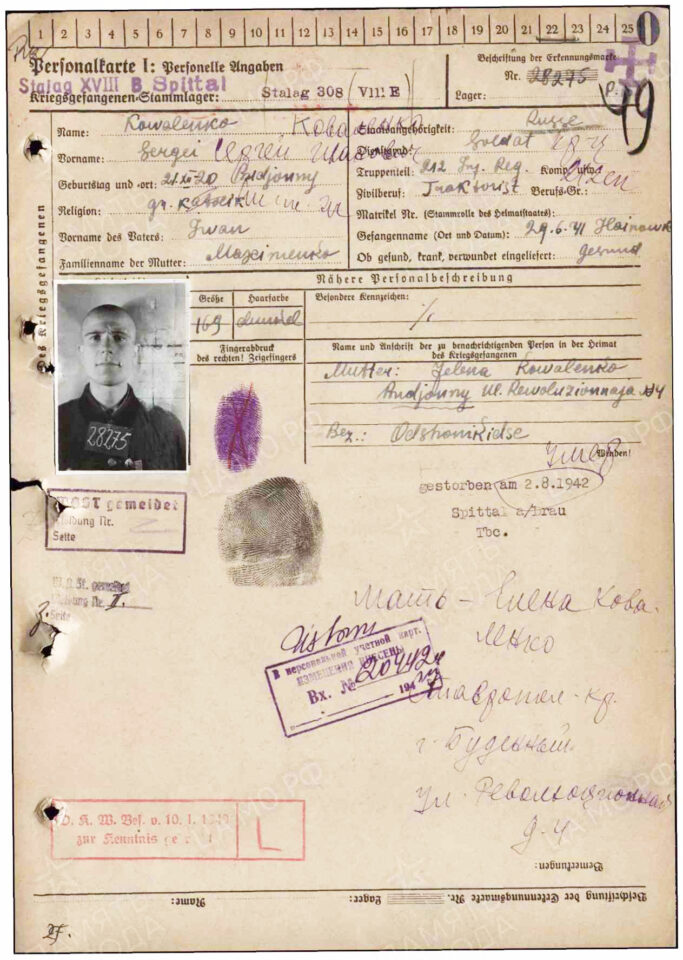 1 2 3 4 5 6 7 8 9 10 11 12 13 14 15 16 17 18 19 20 21 22 23 24 25
Personalkarte I: Personelle Angaben
Stalag XVIII B Spittal
Kriegsgefangenen-Stammlager: Stalag 308 (VIII E)
Beschriftung der Erkennungsmarke
Nr. 28275
Lager:
49
Des Kriegsgefangenen
Name: Kowalenko Коваленко
Vorname: Sergei Сергей
Geburtstag und -ort: 21.XI.20
Religion: gr. Katolik
Vorname des Vaters: Iwan
Familienname der Mutter: Maximenko
Staatsangehörigkeit: Russe
Dienstgrad: Soldat
Truppenteil: 212 Inf. Reg. Komp. usw.
Zivilberuf: Traktorist Berufs-Gr.:
Matrikel Nr. (Stammrolle des Heimatstaates):
Gefangenname (Ort und Datum): 29.6.41 Hainowk
Ob gesund, krank, verwundet eingeliefert: gesund
Nähere Personalbeschreibung
Größe Haarfarbe Besondere Kennzeichen:
169 dunkel ./.
Fingerabdruck
des rechten! Zeigefingers
Name und Anschrift der zu benachrichtigenden Person in der Heimat
des Kriegsgefangenen
Mutter: Jelena Kowalenko
Ul. Rewoluzionnaja
Bez.: Odshonikidse
Wenden!
28275
gestorben am 2.8.1942
Spittal a/Drau
Tbc.
WAST gemeldet
Meldung Nr.
Seite
W.A.St. gemeldet
Meldung Nr. I
Seite
Мать - Елена Кова-
ленко
В персональной учетной карт.
ИЗМЕНЕНИЯ ВНЕСЕНЫ
Вх. № 20442
194
Ставропол. кр.
г. Буденный
ул. Революционная
д. 4
O. K. W. Bef. v. 10. 1. 1942
zur Kenntnis L
Bemerkungen:
Beschriftung der Erkennungsmarke Nr. Lager: Name: